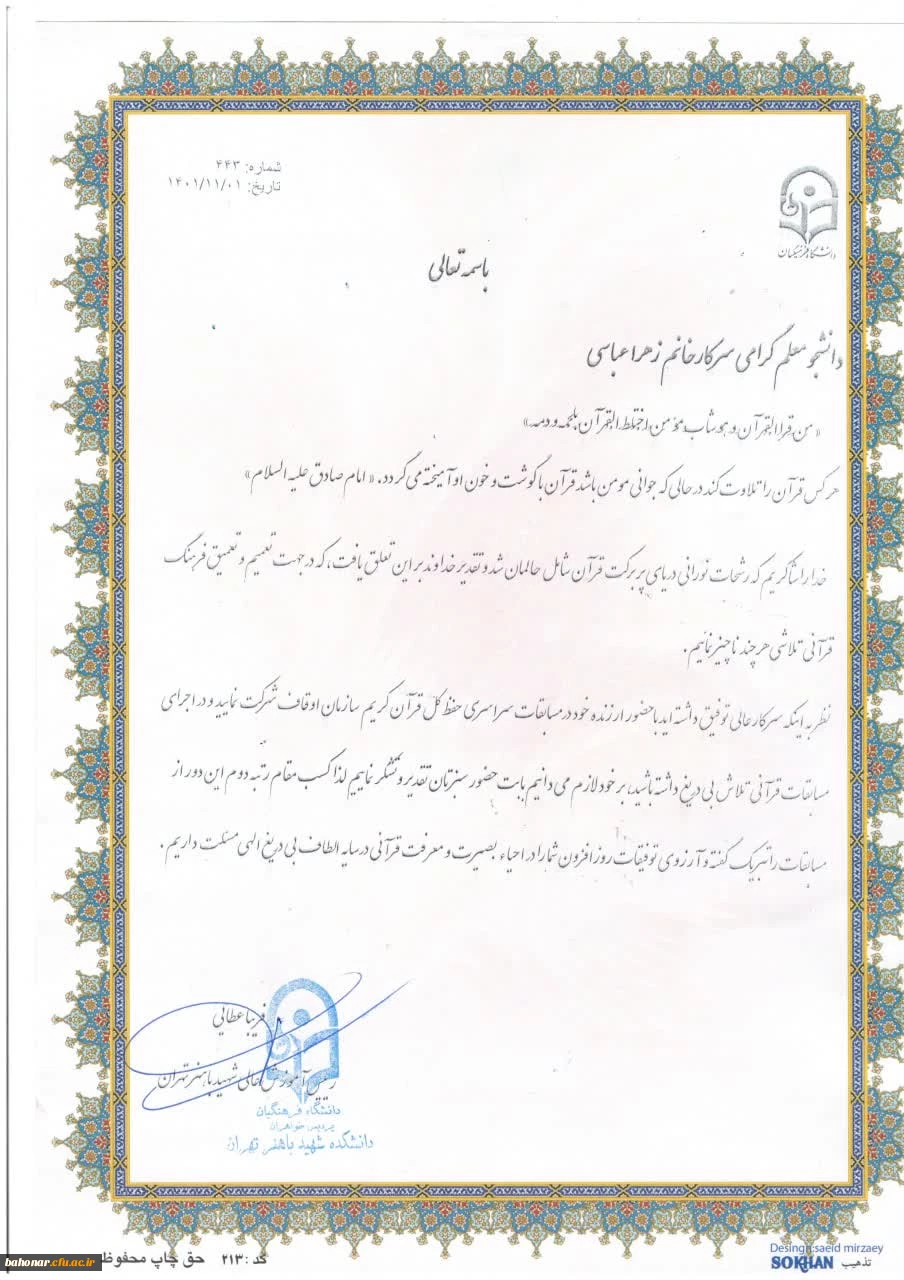 شماره: ۴۴۳
تاریخ: ۱۴۰۱/۱۱/۰۱
دانشگاه فرهنگیان
باسمه تعالی
دانشجو معلم گرامی سرکار خانم زهرا عباسی
«من قرا القرآن و هو شاب مؤمن اختلط القرآن بلحمه و دمه»
هر کس قرآن را تلاوت کند در حالی که جوانی مومن باشد قرآن با گوشت و خون او آمیخته می گردد. «امام صادق علیه السلام»
خدا را شاکریم که رشحات نورانی دریای پر برکت قرآن شامل حالمان شد و تقدیر خداوند بر این تعلق یافت، که در جهت تعمیم و تعمیق فرهنگ
قرآنی تلاشی هر چند ناچیز نمائیم.
نظر به اینکه سرکار عالی توفیق داشته اید با حضور ارزنده خود در مسابقات سراسری حفظ کل قرآن کریم سازمان اوقاف شرکت نمایید و در اجرای
مسابقات قرآنی تلاش بی دریغ داشته باشید، بر خود لازم می دانیم بابت حضور سبزتان تقدیر و تشکر نماییم لذا کسب مقام رتبه دوم این دور از
مسابقات را تبریک گفته و آرزوی توفیقات روز افزون شما را در احیاء بصیرت و معرفت قرآنی در سایه الطاف بی دریغ الهی مسئلت داریم.
فریبا عطایی
رییس آموزش عالی شهید باهنر تهران
دانشگاه فرهنگیان
پردیس خواهران
دانشکده شهید باهنر تهران
Desingn:saeid mirzaey
تذهیب SOKHAN
کد : ۲۱۳ حق چاپ محفوظ
bahonar.cfu.ac.ir